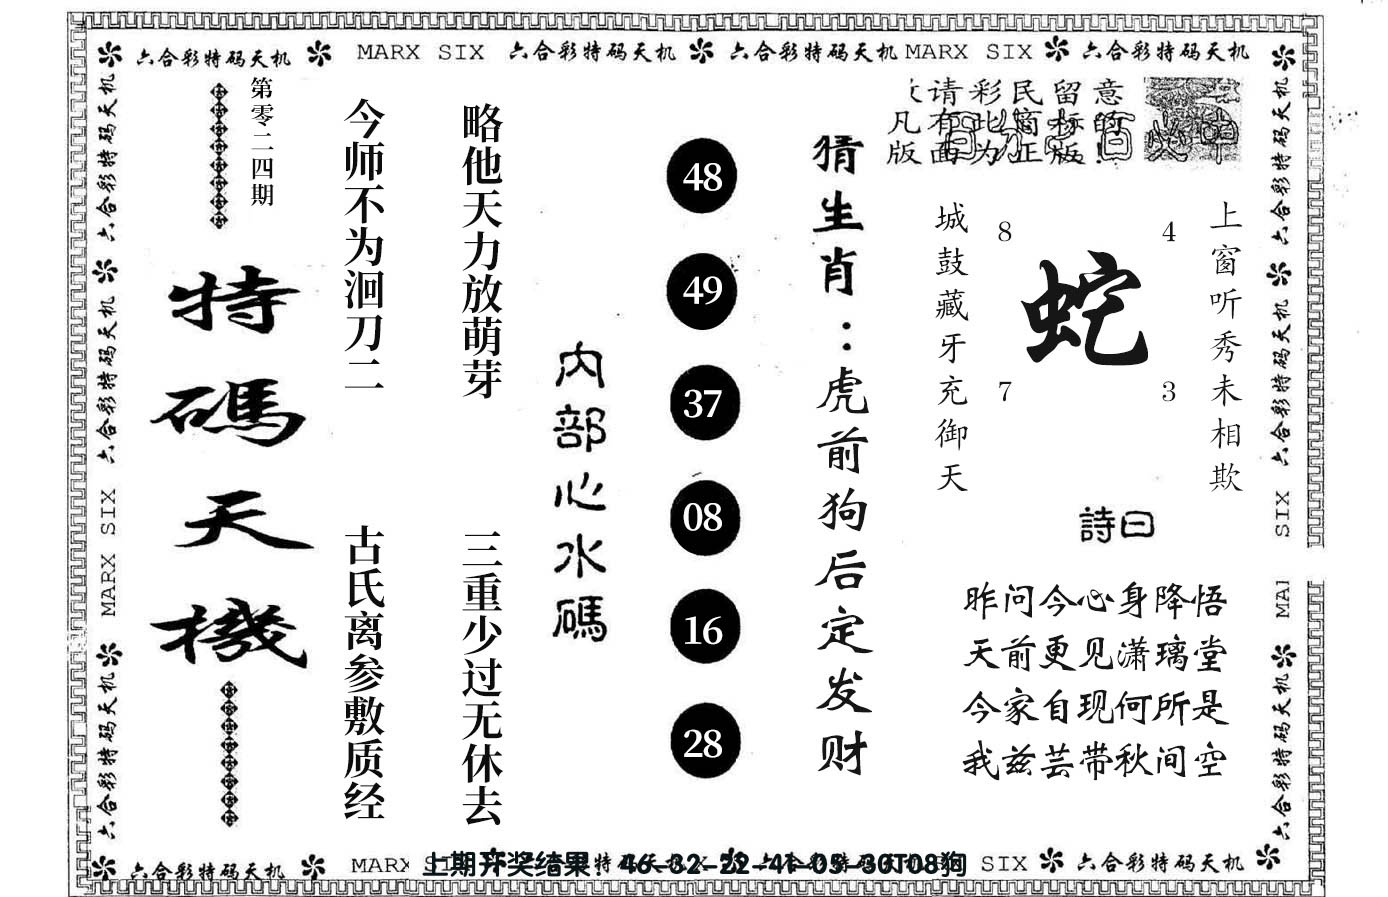 六合彩特码天机 MARX SIX 六合彩特码天机 六合彩特码天机 MARX SIX 六合彩特码天机
六合彩特码天机 六合彩特码天机 MARX SIX 六合彩特码天机
第零二四期
特碼天機
今师不为洄刀二
古氏离参敷质经
略他天力放萌芽
三重少过无休去
内部心水碼
48
49
37
08
16
28
猜生肖：虎前狗后定发财
请彩民留意
凡有此窗标的
版面为正版!
上窗听秀未相欺
城鼓藏牙充御天
8
4
蛇
7
3
詩曰
昨问今心身降悟
天前更见潇璃堂
今家自现何所是
我兹芸带秋间空
六合彩特码天机 六合彩特码天机 SIX MAR 六合彩特码天机
六合彩特码天机 MARX
上期开奖结果：46-32-22-41-05-30T08狗
SIX 六合彩特码天机